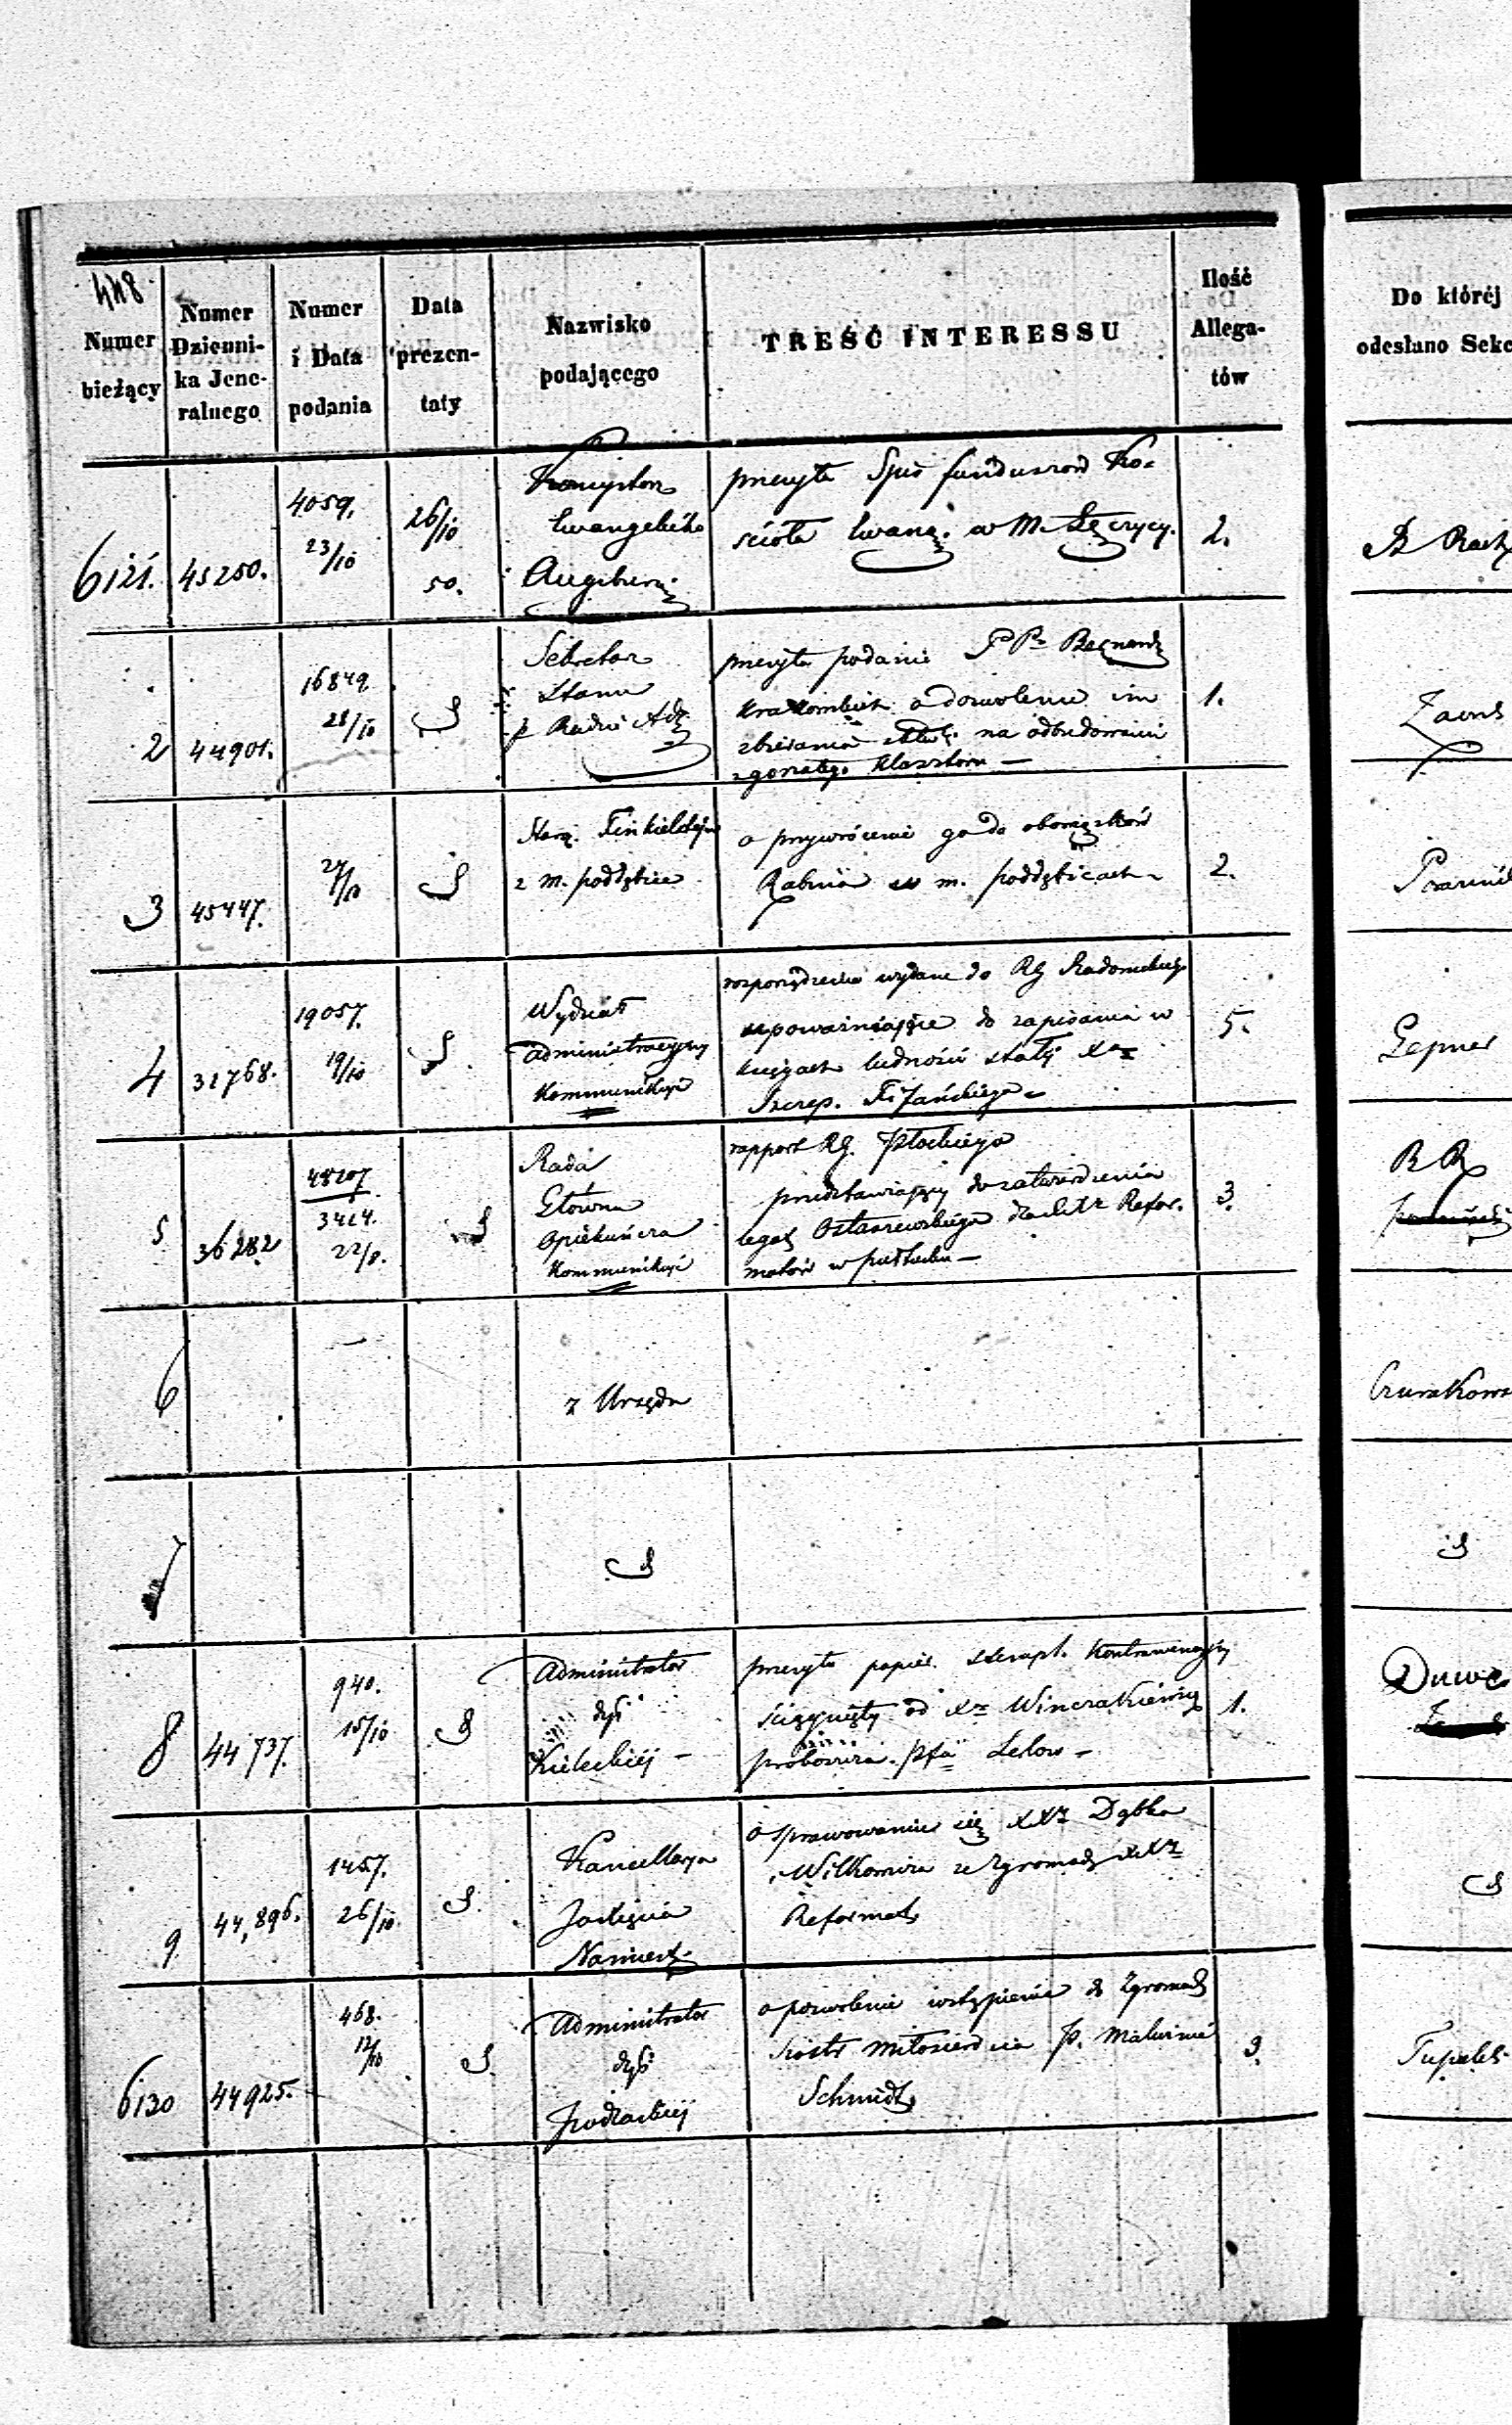 448
Numer
bieżący
Numer
Dzienni-
ka Jene-
ralnego
Numer
i Data
podania
Data
prezen-
taty
Nazwisko
podającego
TREŚĆ INTERESSU
Ilość
Allega-
tów
Do której
odesłano Sekc
6121. 45250.
4059.
23/10
26/10
50.
Konsystorz
Ewangelicko
Augsburs.
przesyła Spis funduszów Ko-
ścioła Ewang. w M. Łęczycy.
2.
2 44901.
16849
28/10
Sekretarz
Stanu
p Radzie Adz
przesyła podanie PPr Bernard
Krakowskich o dozwolenie im
zbierania składk. na odbudowanie
zgorzałego Klasztoru —
1.
3 45447.
27/10
Finkielstejn
z m. Poddębice
o przywrócenie go do obowiązków
Rabina w m. Poddębicach.
2.
4 32768.
19057.
19/10
Wydział
Administracyjny
Kommunikuje
rozporządzenie wydane do RG Radomskiego
upoważniające do zapisania w
księgach ludności stałej Xa
Szczep.
5.
Lepner
5 36282
48207
3424.
22/8.
Rada
Główna
Opiekuńcza
Kommunikuje
rapport RG. Płockiego
przedstawiający do zatwierdzenia
legat Ostaszewskiego dla XXz Refor-
matów w Pułtusku —
3.
6
z Urzędu
7
8 44737.
940.
15/10
Administrator
dyć
Kieleckiej —
przesyła papier stempl. Kontrawencyjny
ściągnięty od Xa Winczakiewicz
proboszcza Pfii Lelow —
1.
9 44,896.
1457.
26/10.
Kancellarya
Jaśnięcia
Namiest.
o sprawowaniu się XXz Dąbka
i Wilkomira ze Zgromadz XXz
Reformat
6130 44925.
468.
12/10
Administrator
dyć
Podlaskiej
o pozwolenie wstąpienia do Zgromadz
Siostr Miłosierdzia P. Malwinie
Schmidt
3.